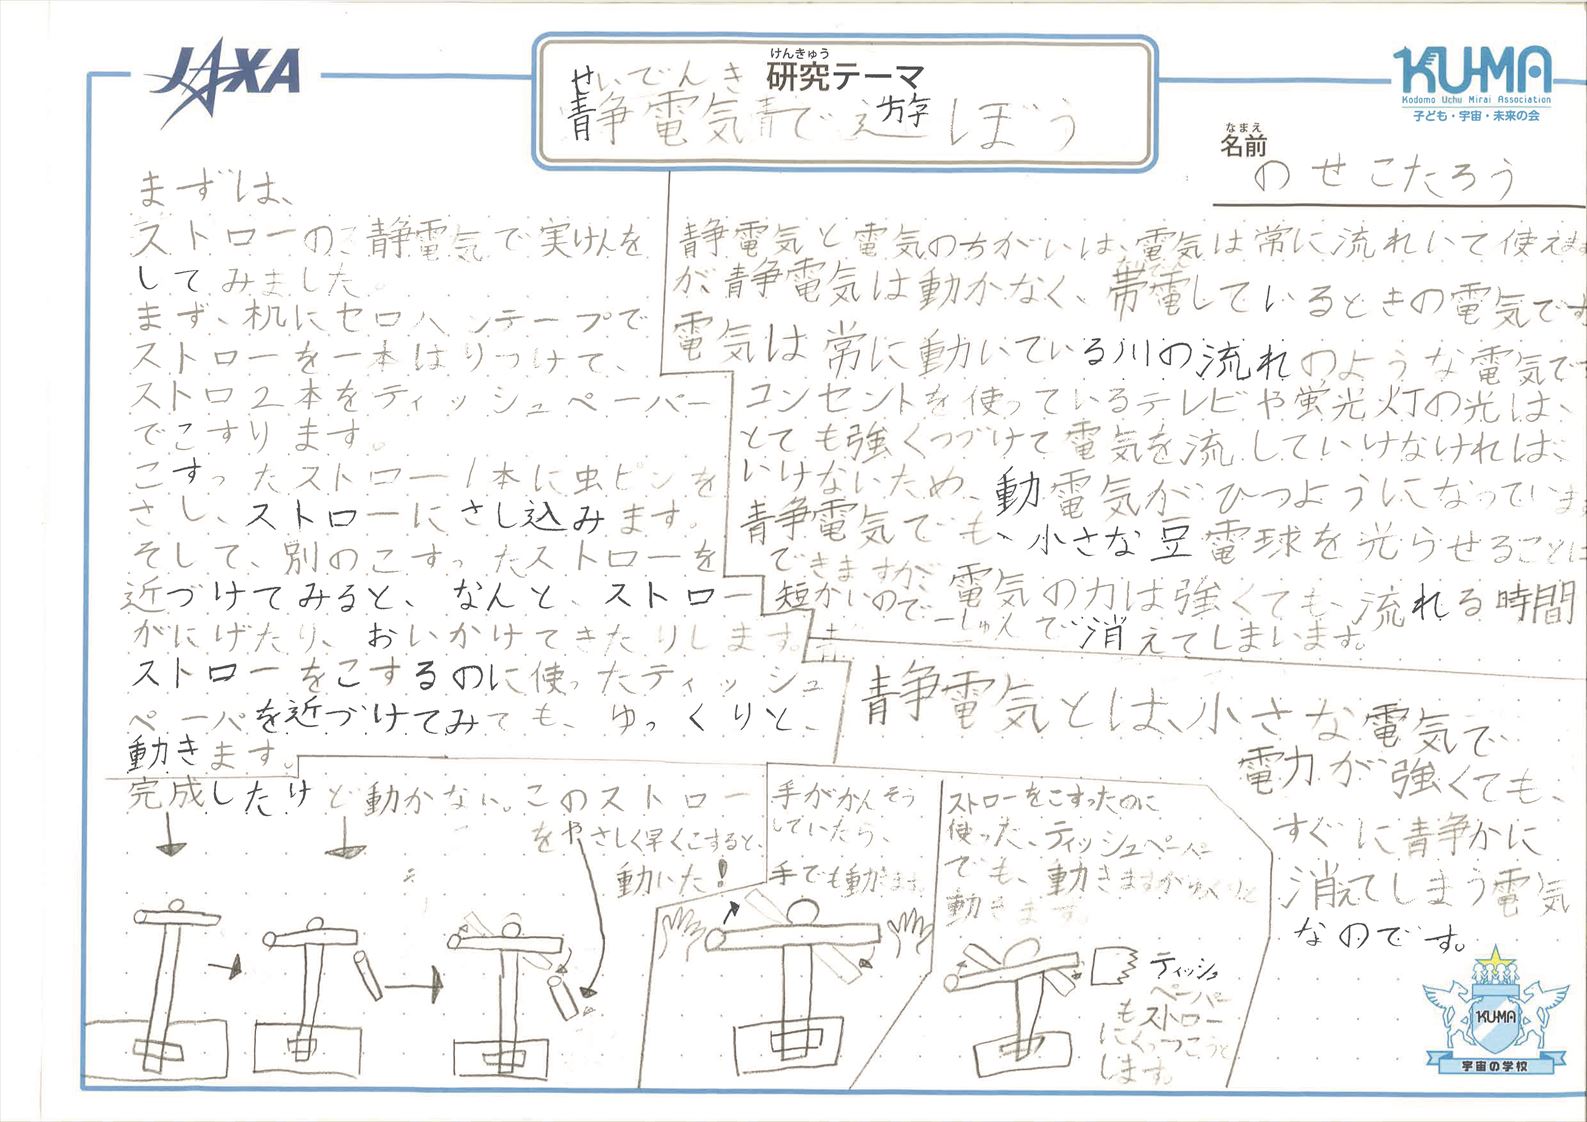 JAXA
けんきゅう
研究テーマ
せいでんき
静電気で遊ぼう
KUMA
Kodomo Uchu Mirai Association
子ども・宇宙・未来の会
なまえ
名前
のせこたろう
まずは、
ストローの静電気で実けんを
してみました。
まず、机にセロハンテープで
ストローを一本はりつけて、
ストロ2本をティッシュペーパー
でこすります。
こすったストロー1本に虫ピンを
さし、ストローにさし込みます。
そして、別のこすったストローを
近づけてみると、なんと、ストロー
がにげたり、おいかけてきたりします。
ストローをこするのに使ったティッシュ
ペーパを近づけてみても、ゆっくりと、
動きます。
静電気と電気のちがいは、電気は常に流れいて使えます
が、静電気は動かなく、帯電しているときの電気です
電気は常に動いている川の流れのような電気です
コンセントを使っているテレビや蛍光灯の光は、
とても強くつづけて電気を流していけなければ、
いけないため、動電気がひつようになっています
静電気でも、小さな豆電球を光らせることは
できますが、電気の力は強くても、流れる時間
短かいので一しゅんで消えてしまいます。
静電気とは、小さな電気で
電力が強くても、
すぐに静かに
消えてしまう電気
なのです。
完成したけど動かない。このストロー
をやさしく早くこすると、
動いた!
手がかんそう
していたら、
手でも動きます。
ストローをこすったのに
使った、ティッシュペーパー
でも、動きますがゆっくりと
動きます。
ティッシュ
ペーパー
もストロー
にくっつこうと
します。
KUMA
宇宙の学校